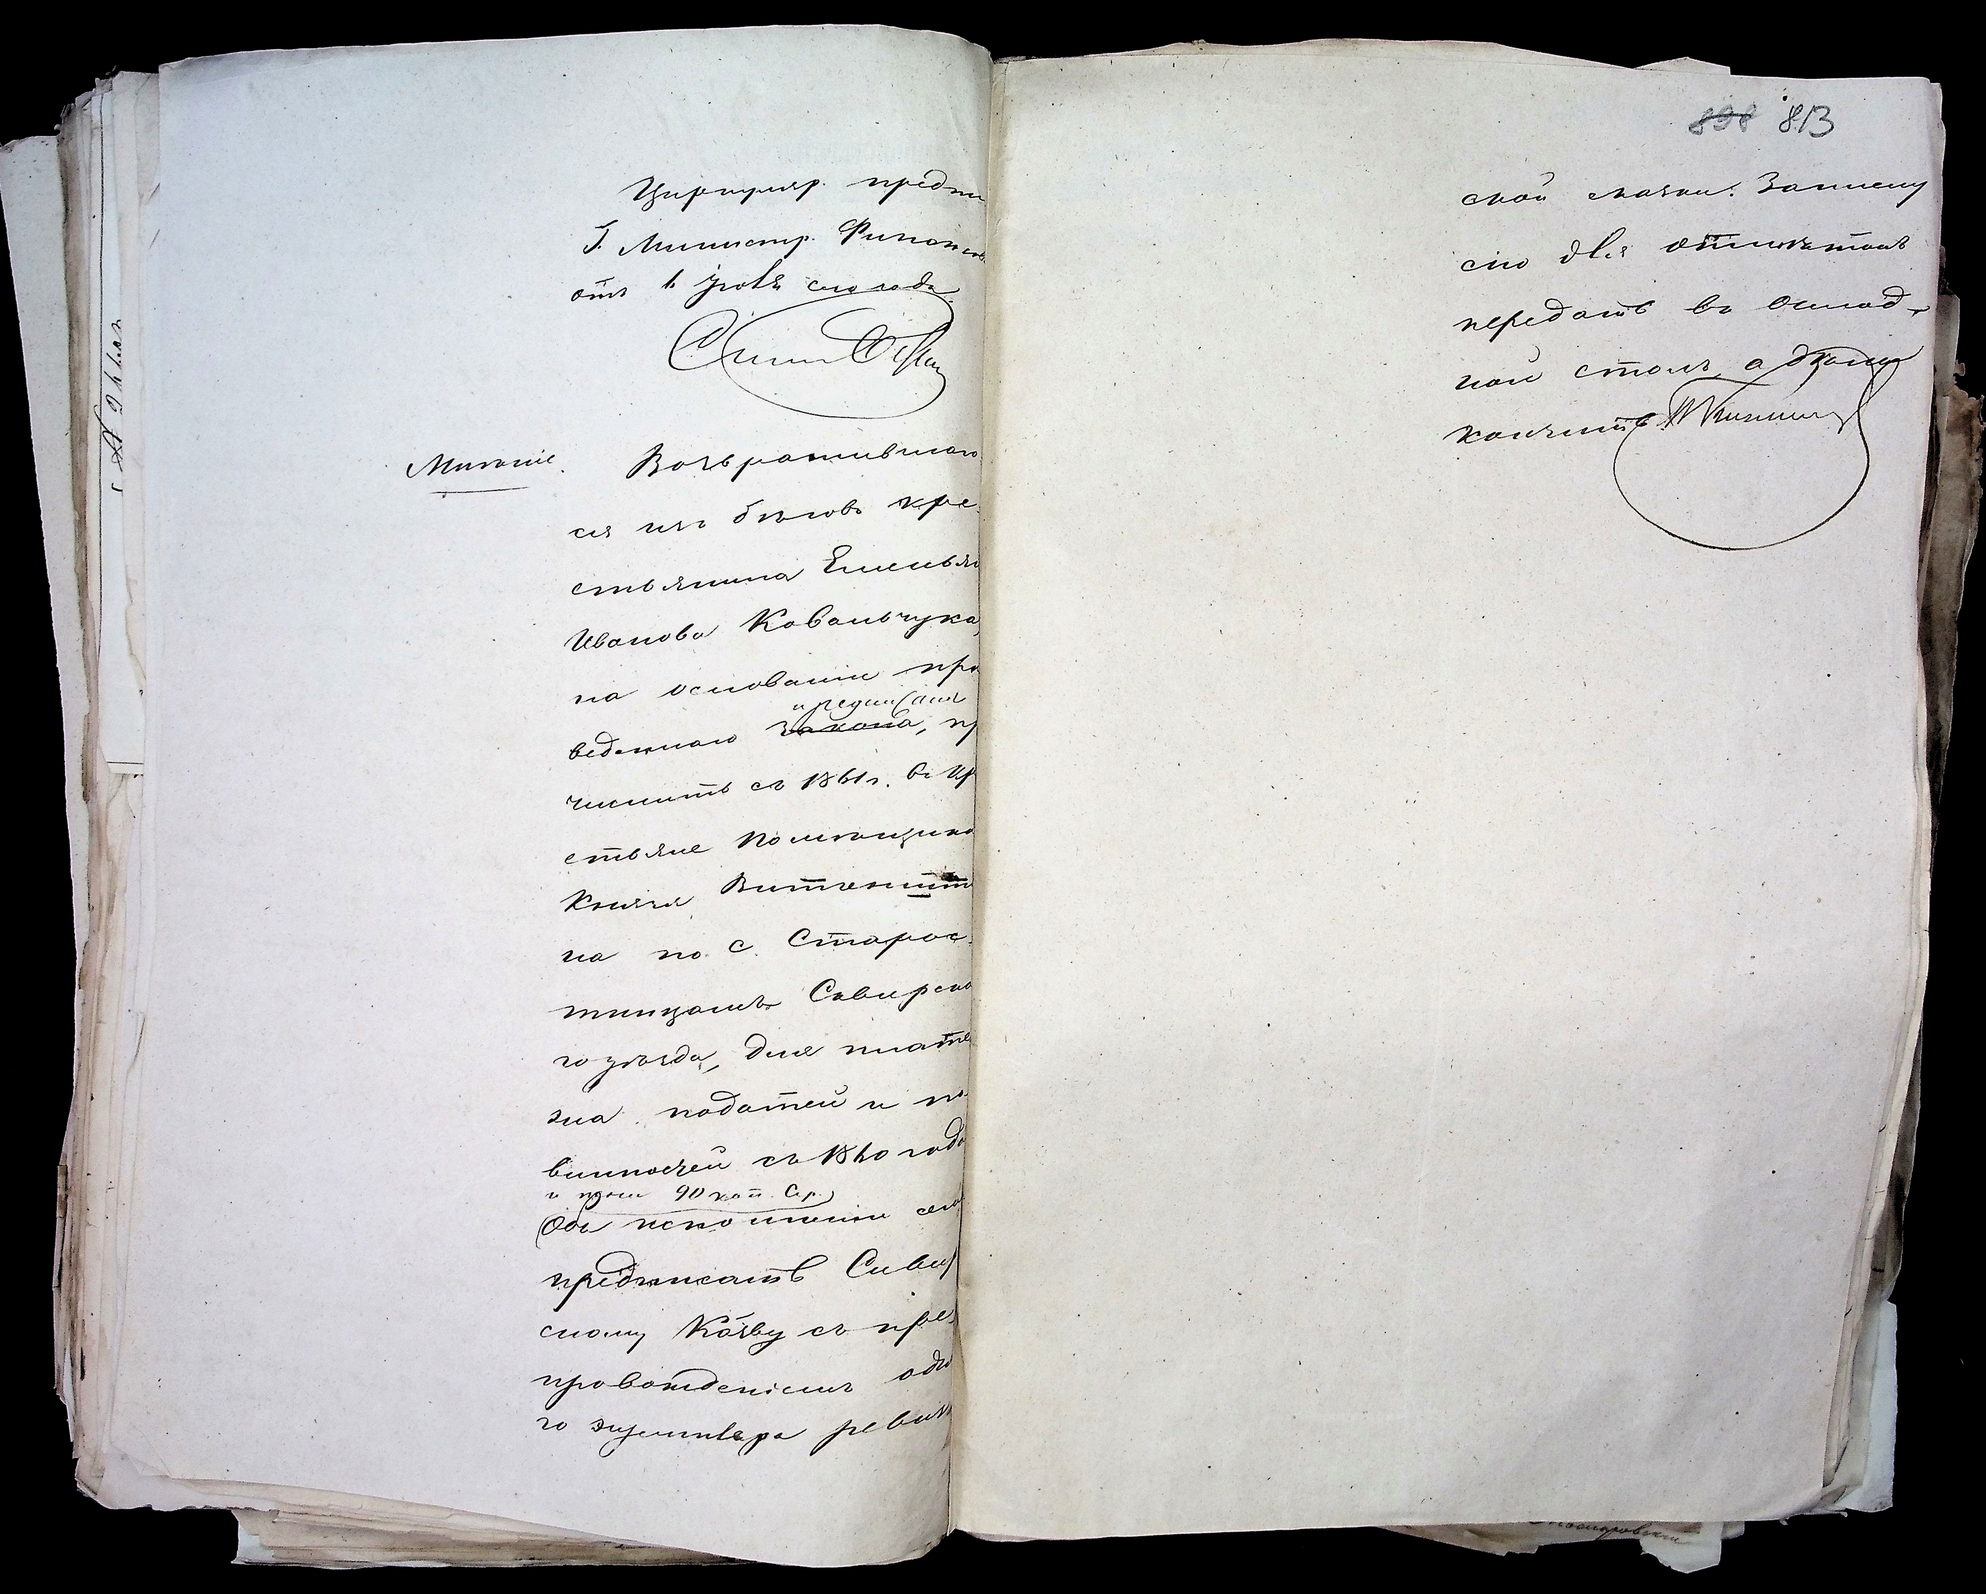 Циркуляр. предпи
Г. Министр. Финансов
отъ 6 Іюля сего года
Мнѣніе. Возвратившаго
ся изъ бѣговъ кре-
стьянина Емельян
Иванова Ковальчука,
на основаніи при
предписанія
веденнаго закона, пр
числить съ 1861 г. въ кр
стьяне помѣщика
Князя Витгеншт
на по с. Старос-
тинцамъ Сквирска
го уѣзда, для плате
жа податей и по
винностей съ 1860 года
и пени 90 коп. Сер.
Объ исполненіи сего
предписать Сквир
скому Казву съ пре-
провожденіемъ одно
го экземпляра ревиз
838 813
ской сказки. Записку
сію для отмѣтокъ
передать въ оклад-
ной столъ, а дѣло
кончить.